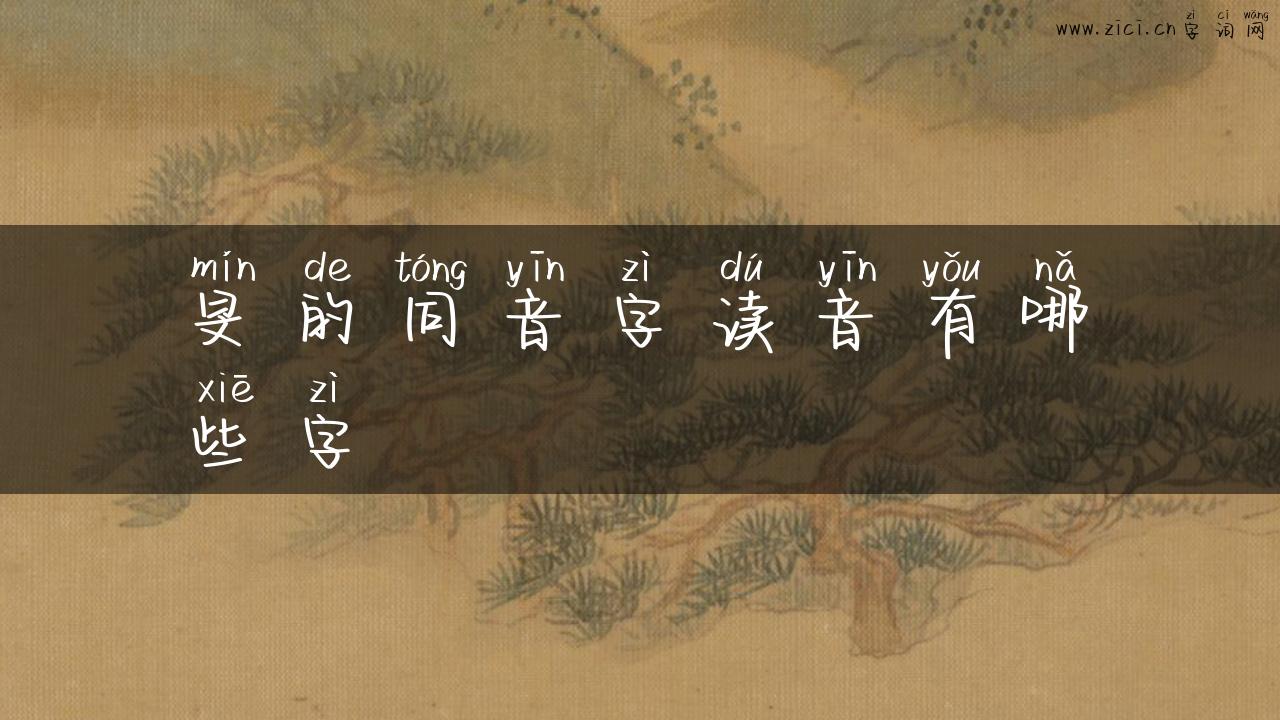 zì cí wǎng
www.zici.cn 字 词 网
mín de tóng yīn zì dú yīn yǒu nǎ
旻 的 同 音 字 读 音 有 哪
xiē zì
些 字